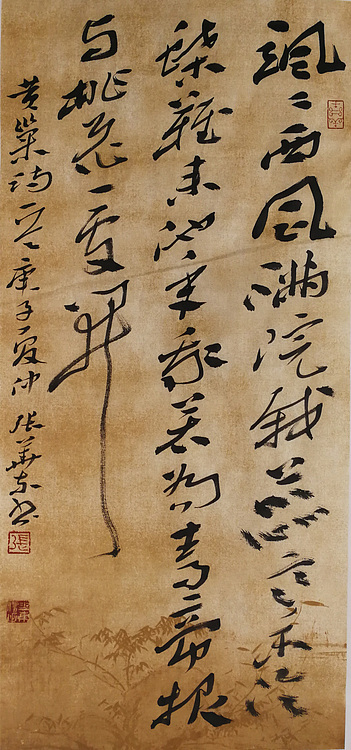 飒〻西风满院栽蕊寒香冷
蝶難来他年我若为青帝报
与桃花一处开
黄巢诗一首庚子夏仲张华东书
张